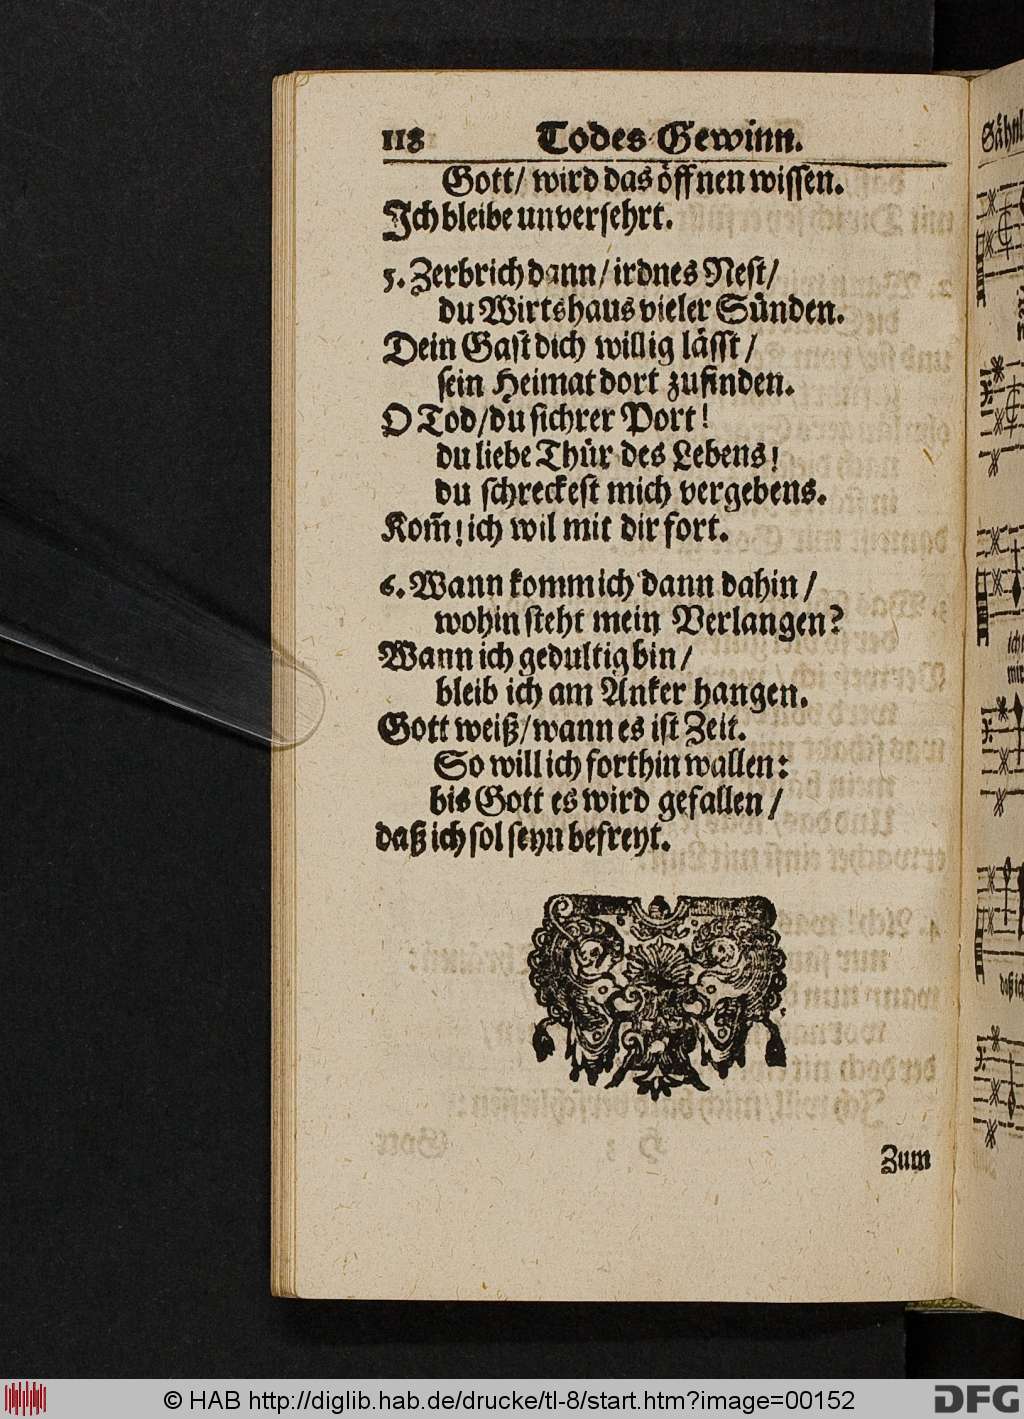 118 Todes Gewinn.
Gott/ wird das öffnen wissen.
Ich bleibe unversehrt.
5. Zerbrich dann/ irdnes Nest/
du Wirtshaus vieler Sünden.
Dein Gast dich willig lässt/
sein Heimat dort zufinden.
O Tod/ du sichrer Port!
du liebe Thür des Lebens!
du schreckest mich vergebens.
Kom̃! ich wil mit dir fort.
6. Wann komm ich dann dahin/
wohin steht mein Verlangen?
Wann ich gedultig bin/
bleib ich am Anker hangen.
Gott weiß/ wann es ist Zeit.
So will ich forthin wallen:
bis Gott es wird gefallen/
daß ich sol seyn befreyt.
Zum
© HAB http://diglib.hab.de/drucke/tl-8/start.htm?image=00152
DFG